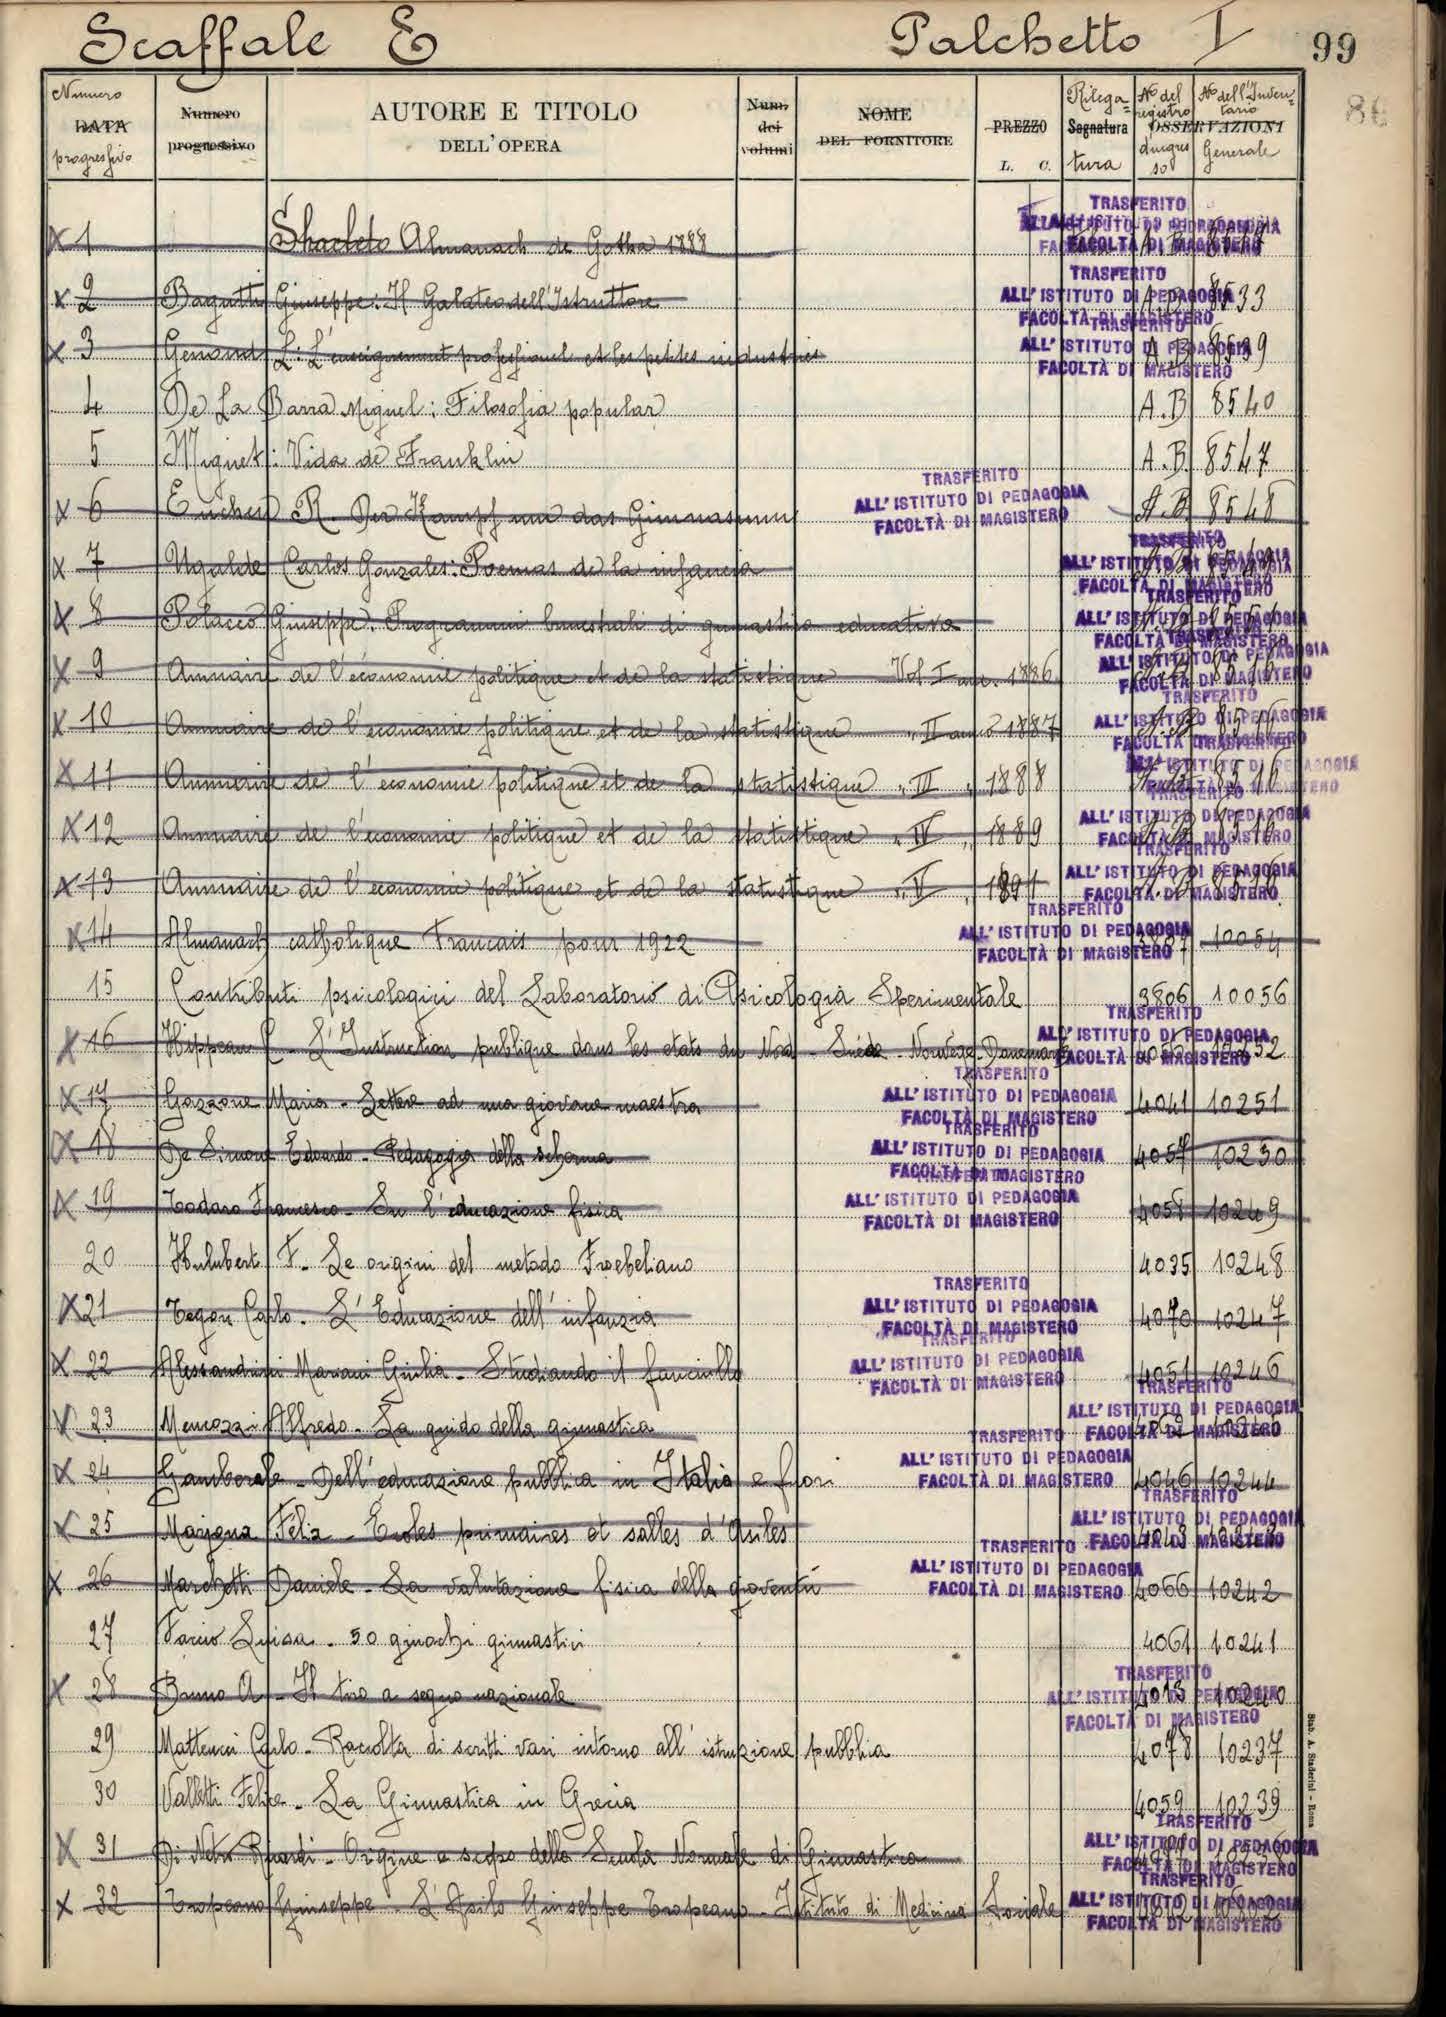 Scaffale E Palchetto I 99
86
Numero DATA progressivo
Numero progressivo
AUTORE E TITOLO DELL'OPERA
Num. dei volumi
NOME DEL FORNITORE
PREZZO L. C.
Rilega= Segnatura tura
No del registro d'ingresso
No dell'Inventario OSSERVAZIONI Generale
X 1 Almanach de Gotha 1888 TRASFERITO ALL'ISTITUTO DI PEDAGOGIA FACOLTÀ DI MAGISTERO
X 2 Giuseppe: Il Galateo dell'Istruttore A.B 8533 TRASFERITO ALL'ISTITUTO DI PEDAGOGIA FACOLTÀ DI MAGISTERO
X 3 L: L'enseignement professionel et les petites industries A.B 8539 TRASFERITO ALL'ISTITUTO DI PEDAGOGIA FACOLTÀ DI MAGISTERO
4 De La Barra Miguel: Filosofia popular A.B 8540
5 Mignet: Vida de Franklin A.B. 8547
X 6 R Der Kampf um das Gimnasium TRASFERITO ALL'ISTITUTO DI PEDAGOGIA FACOLTÀ DI MAGISTERO A.B 8548
X 7 Ugalde Carlos Gonzales: Poemas de la infancia TRASFERITO ALL'ISTITUTO DI PEDAGOGIA FACOLTÀ DI MAGISTERO
X 8 Polacco Giuseppe: Programmi bimestrali di ginnastica educativa TRASFERITO ALL'ISTITUTO DI PEDAGOGIA FACOLTÀ DI MAGISTERO
X 9 Annaire de l'économie politique et de la statistique Vol I 1886 TRASFERITO ALL'ISTITUTO DI PEDAGOGIA FACOLTÀ DI MAGISTERO
X 10 Annuaire de l'economie politique et de la statistique " II 1887 TRASFERITO ALL'ISTITUTO DI PEDAGOGIA FACOLTÀ DI MAGISTERO
X 11 Annuaire de l'économie politique et de la statistique " III " 1888 TRASFERITO ALL'ISTITUTO DI PEDAGOGIA FACOLTÀ DI MAGISTERO
X 12 Annuaire de l'economie politique et de la statistique " IV " 1889 TRASFERITO ALL'ISTITUTO DI PEDAGOGIA FACOLTÀ DI MAGISTERO
X 13 Annuaire de l'economie politique et de la statistique " V " 1891 TRASFERITO ALL'ISTITUTO DI PEDAGOGIA FACOLTÀ DI MAGISTERO
X 14 Almanach catholique Francais pour 1922 TRASFERITO ALL'ISTITUTO DI PEDAGOGIA FACOLTÀ DI MAGISTERO 10054
15 Contributi psicologici del Laboratorio di Psicologia Sperimentale 3806 10056
X 16 Hippeau C - L'Instruction publique dans les etats du Nord - Suède - Norvège - Danemark TRASFERITO ALL'ISTITUTO DI PEDAGOGIA FACOLTÀ DI MAGISTERO
X 17 Gazzone Maria - Lettere ad una giovane maestra TRASFERITO ALL'ISTITUTO DI PEDAGOGIA FACOLTÀ DI MAGISTERO 4041 10251
X 18 De Simone Edoardo - Pedagogia della scherma TRASFERITO ALL'ISTITUTO DI PEDAGOGIA FACOLTÀ DI MAGISTERO 4057 10250
X 19 Todaro Francesco - Su l'educazione fisica TRASFERITO ALL'ISTITUTO DI PEDAGOGIA FACOLTÀ DI MAGISTERO 10249
20 Hulubert F. Le origini del metodo Froebeliano 4035 10248
X 21 Tegon Carlo. L'Educazione dell'infanzia TRASFERITO ALL'ISTITUTO DI PEDAGOGIA FACOLTÀ DI MAGISTERO 4070 10247
X 22 Alessandrini Mariani Giulia - Studiando il fanciullo TRASFERITO ALL'ISTITUTO DI PEDAGOGIA FACOLTÀ DI MAGISTERO 4051 10246
X 23 Mencozzi Alfredo - La guida della ginnastica TRASFERITO ALL'ISTITUTO DI PEDAGOGIA FACOLTÀ DI MAGISTERO
X 24 Gamberale - Dell'educazione pubblica in Italia e fuori TRASFERITO ALL'ISTITUTO DI PEDAGOGIA FACOLTÀ DI MAGISTERO 4046 10244
X 25 Felix - Ecoles primaires et salles d'Asiles TRASFERITO ALL'ISTITUTO DI PEDAGOGIA FACOLTÀ DI MAGISTERO
X 26 Marchetti Daniele - La valutazione fisica della gioventù TRASFERITO ALL'ISTITUTO DI PEDAGOGIA FACOLTÀ DI MAGISTERO 4066 10242
27 Luisa - 50 giuochi ginnastici 4061 10241
X 28 Bruno A - Il tiro a segno nazionale TRASFERITO ALL'ISTITUTO DI PEDAGOGIA FACOLTÀ DI MAGISTERO 10240
29 Matteucci Carlo - Raccolta di scritti vari intorno all'istruzione pubblica 4078 10237
30 Valletti Felice - La Ginnastica in Grecia 4059 10239
X 31 - Origine e scopo della Scuola Normale di Ginnastica TRASFERITO ALL'ISTITUTO DI PEDAGOGIA FACOLTÀ DI MAGISTERO
X 32 Tropeano Giuseppe - L'Asilo Giuseppe Tropeano - Istituto di Medicina Sociale TRASFERITO ALL'ISTITUTO DI PEDAGOGIA FACOLTÀ DI MAGISTERO
Stab. A. Staderini - Roma